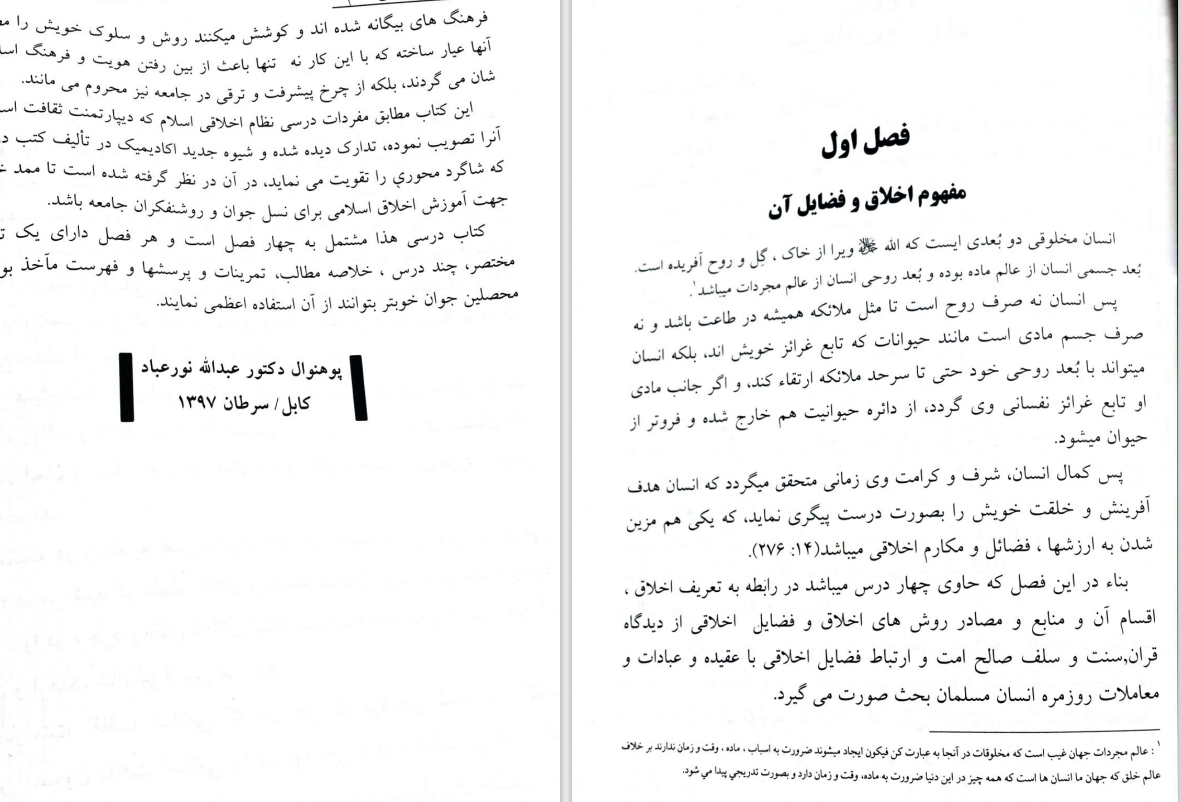 فصل اول
مفهوم اخلاق و فضایل آن
انسان مخلوقی دو بُعدی ایست که الله ﷻ ویرا از خاک ، گِل و روح آفریده است.
بُعد جسمی انسان از عالم ماده بوده و بُعد روحی انسان از عالم مجردات میباشد¹.
پس انسان نه صرف روح است تا مثل ملائکه همیشه در طاعت باشد و نه
صرف جسم مادی است مانند حیوانات که تابع غرائز خویش اند، بلکه انسان
میتواند با بُعد روحی خود حتی تا سرحد ملائکه ارتقاء کند، و اگر جانب مادی
او تابع غرائز نفسانی وی گردد، از دائره حیوانیت هم خارج شده و فروتر از
حیوان میشود.
پس کمال انسان، شرف و کرامت وی زمانی متحقق میگردد که انسان هدف
آفرینش و خلقت خویش را بصورت درست پیگری نماید، که یکی هم مزین
شدن به ارزشها ، فضائل و مکارم اخلاقی میباشد(۱۴: ۲۷۶).
بناء در این فصل که حاوی چهار درس میباشد در رابطه به تعریف اخلاق ،
اقسام آن و منابع و مصادر روش های اخلاق و فضایل اخلاقی از دیدگاه
قران,سنت و سلف صالح امت و ارتباط فضایل اخلاقی با عقیده و عبادات و
معاملات روزمره انسان مسلمان بحث صورت می گیرد.
¹ : عالم مجردات جهان غیب است که مخلوقات در آنجا به عبارت کن فیکون ایجاد میشوند ضرورت به اسباب ، ماده ، وقت و زمان ندارند بر خلاف
عالم خلق که جهان ما انسان ها است که همه چیز در این دنیا ضرورت به ماده، وقت و زمان دارد و بصورت تدریجي پیدا مي شود.
فرهنگ های بیگانه شده اند و کوشش میکنند روش و سلوک خویش را
آنها عیار ساخته که با این کار نه تنها باعث از بین رفتن هویت و فرهنگ
شان می گردند، بلکه از چرخ پیشرفت و ترقی در جامعه نیز محروم می مانند.
این کتاب مطابق مفردات درسی نظام اخلاقی اسلام که دیپارتمنت ثقافت
آنرا تصویب نموده، تدارک دیده شده و شیوه جدید اکادیمیک در تألیف کتب
که شاگرد محوري را تقویت می نماید، در آن در نظر گرفته شده است تا ممد
جهت آموزش اخلاق اسلامی برای نسل جوان و روشنفکران جامعه باشد.
کتاب درسی هذا مشتمل به چهار فصل است و هر فصل دارای یک
مختصر، چند درس ، خلاصه مطالب، تمرینات و پرسشها و فهرست مآخذ
محصلین جوان خوبتر بتوانند از آن استفاده اعظمی نمایند.
پوهنوال دکتور عبدالله نورعباد
کابل/ سرطان ۱۳۹۷